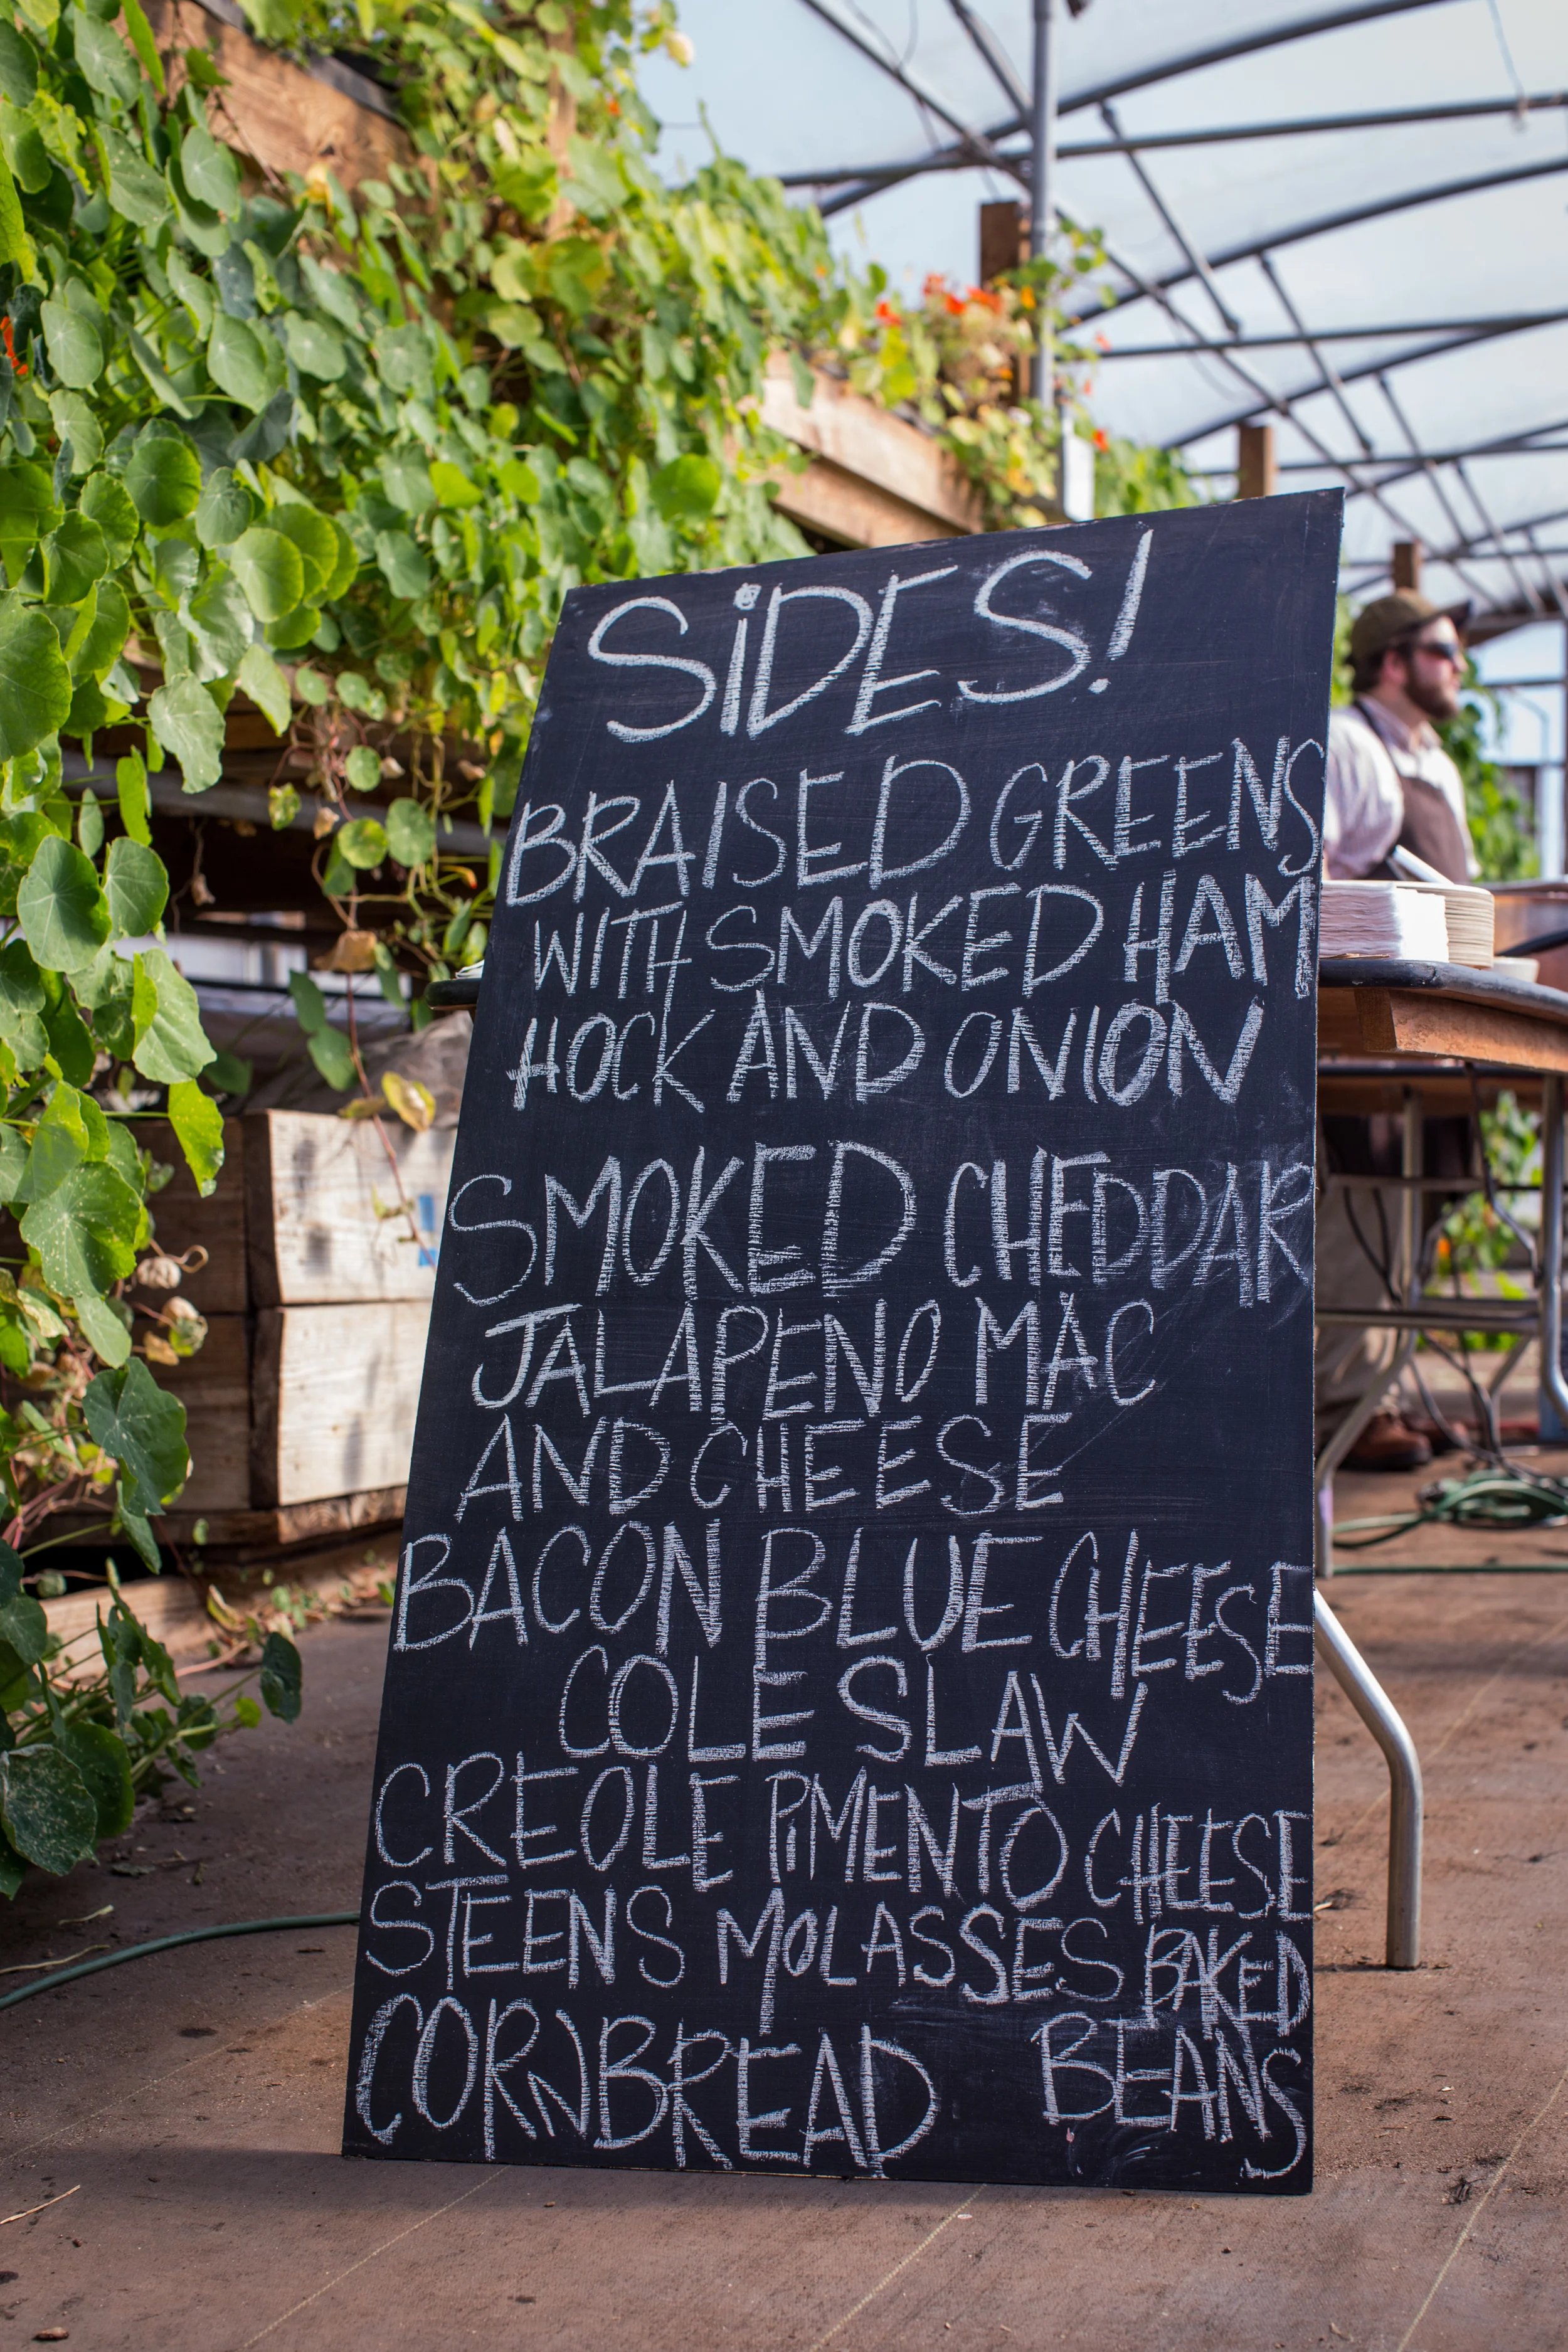 SiDES!
BRAISED GREENS
WITH SMOKED HAM
HOCK AND ONION
SMOKED CHEDDAR
JALAPENO MAC
AND CHEESE
BACON BLUE CHEESE
COLE SLAW
CREOLE PiMENTO CHEESE
STEENS MOLASSES BAKED
BEANS
CORNBREAD